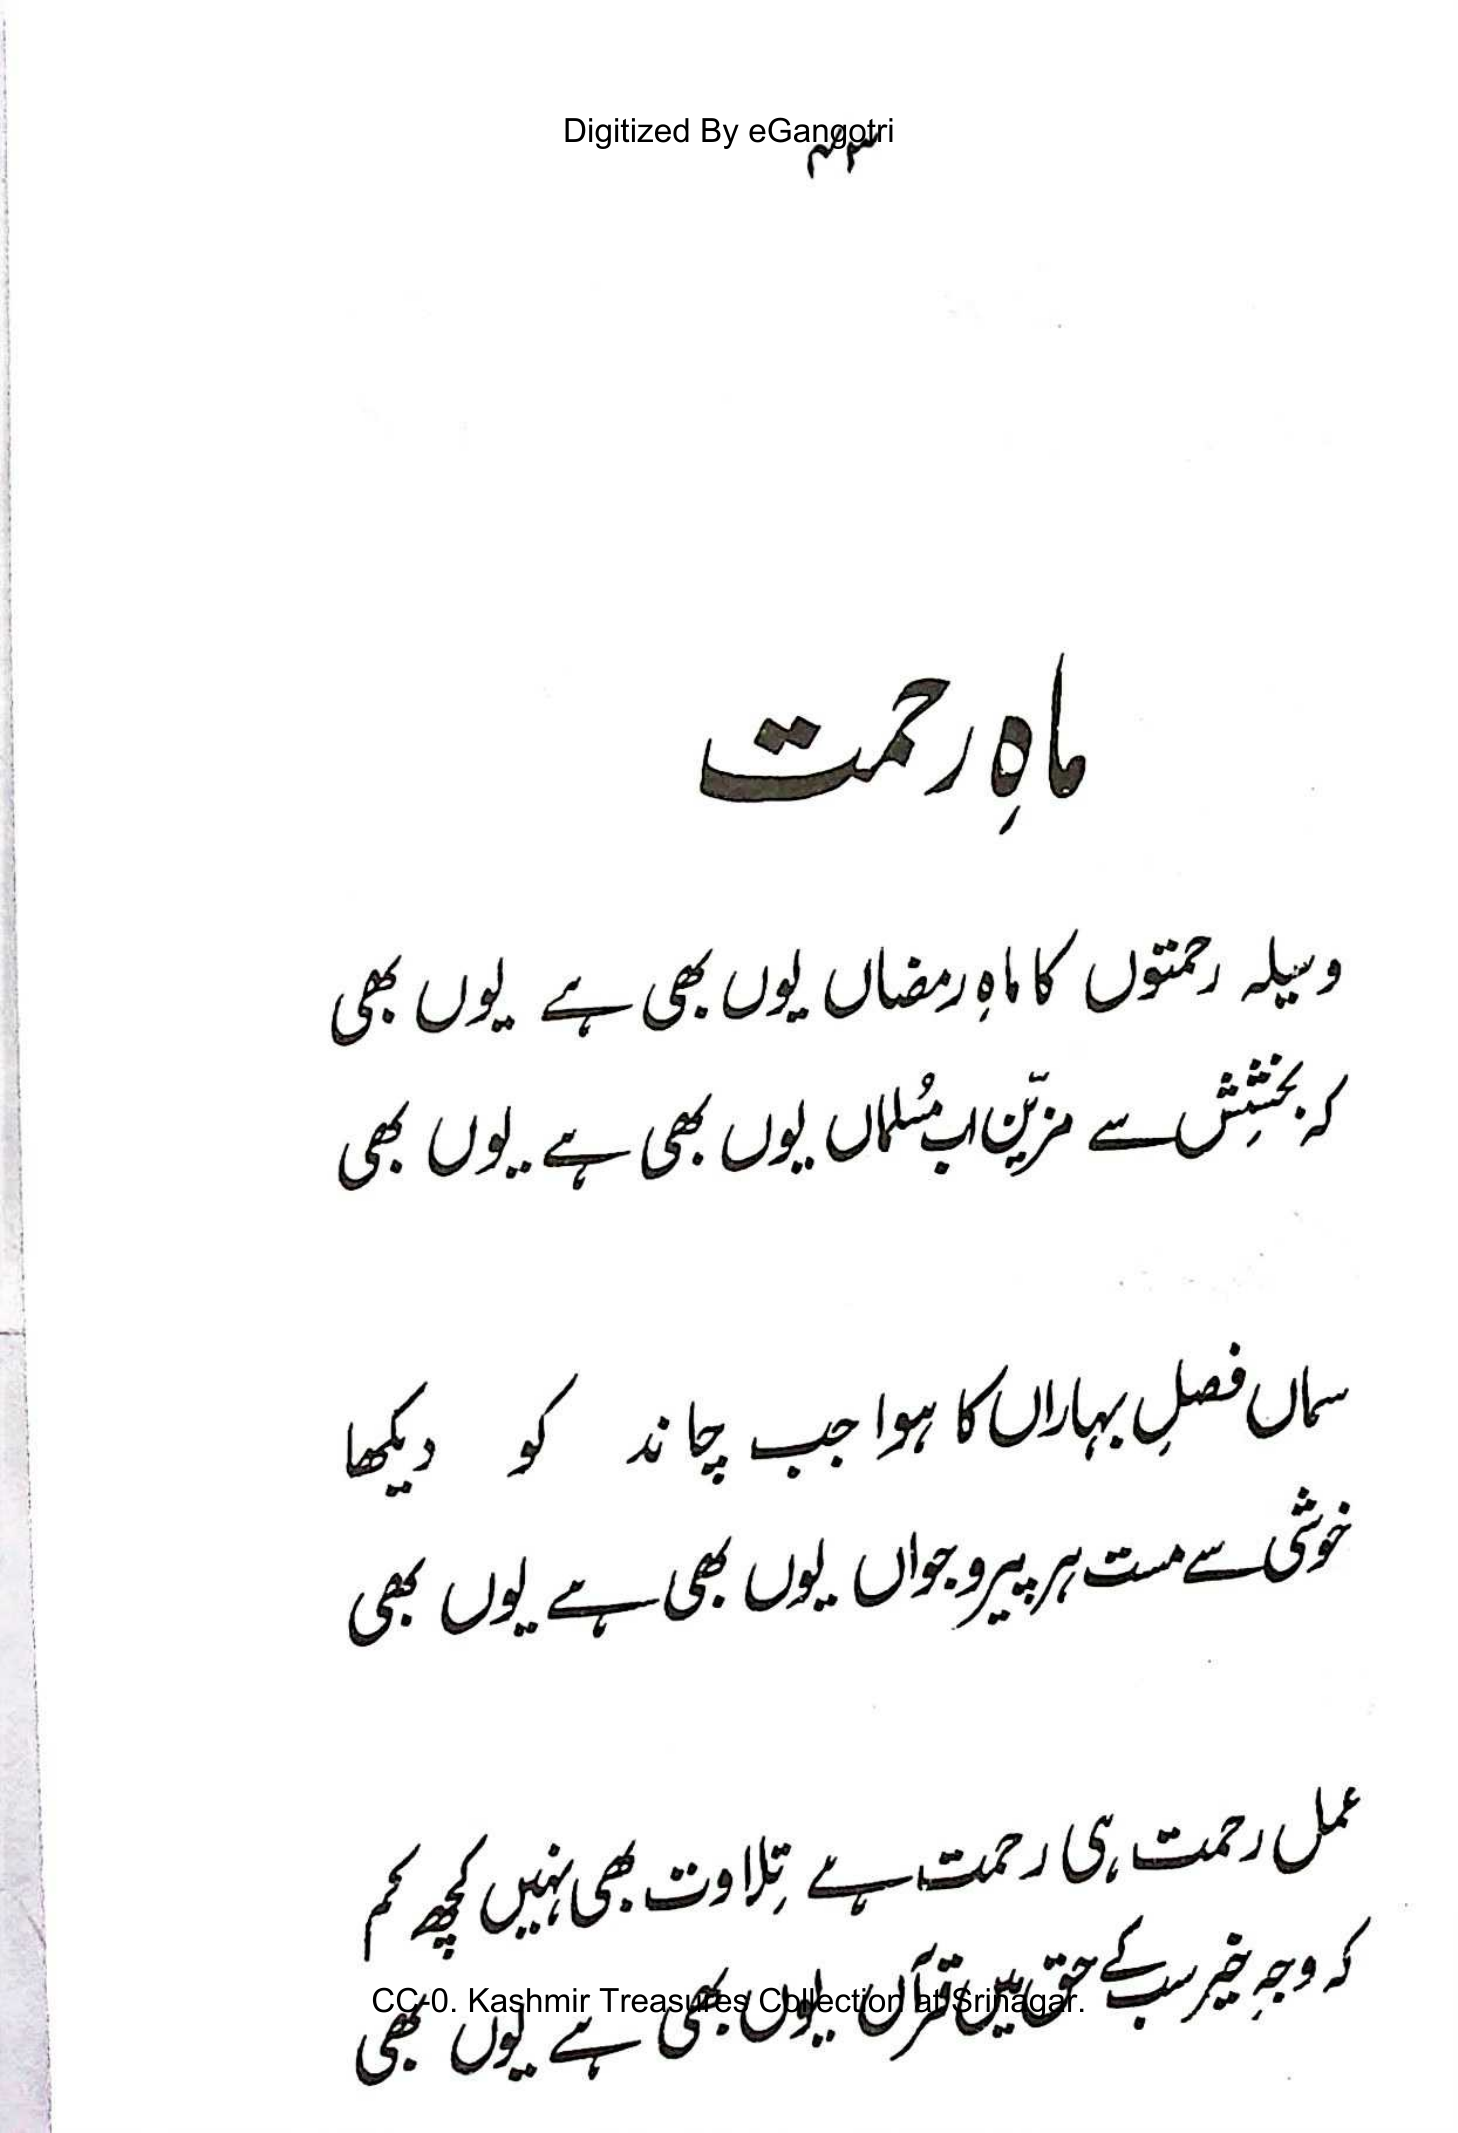 Digitized By eGangotri
۴۳
ماہِ رحمت
وسیلہ رحمتوں کا ماہِ رمضاں یوں بھی ہے یوں بھی
کہ بخشِش سے مزیّن اب مُسلماں یوں بھی ہے یوں بھی
سماں فصلِ بہاراں کا ہوا جب چاند کو دیکھا
خوشی سے مست ہر پیر و جواں یوں بھی ہے یوں بھی
عمل رحمت ہی رحمت ہے تِلاوت بھی نہیں کچھ کم
کہ وجہِ خیر سب کے حق میں قرآں یوں بھی ہے یوں بھی
CC-0. Kashmir Treasures Collection at Srinagar.